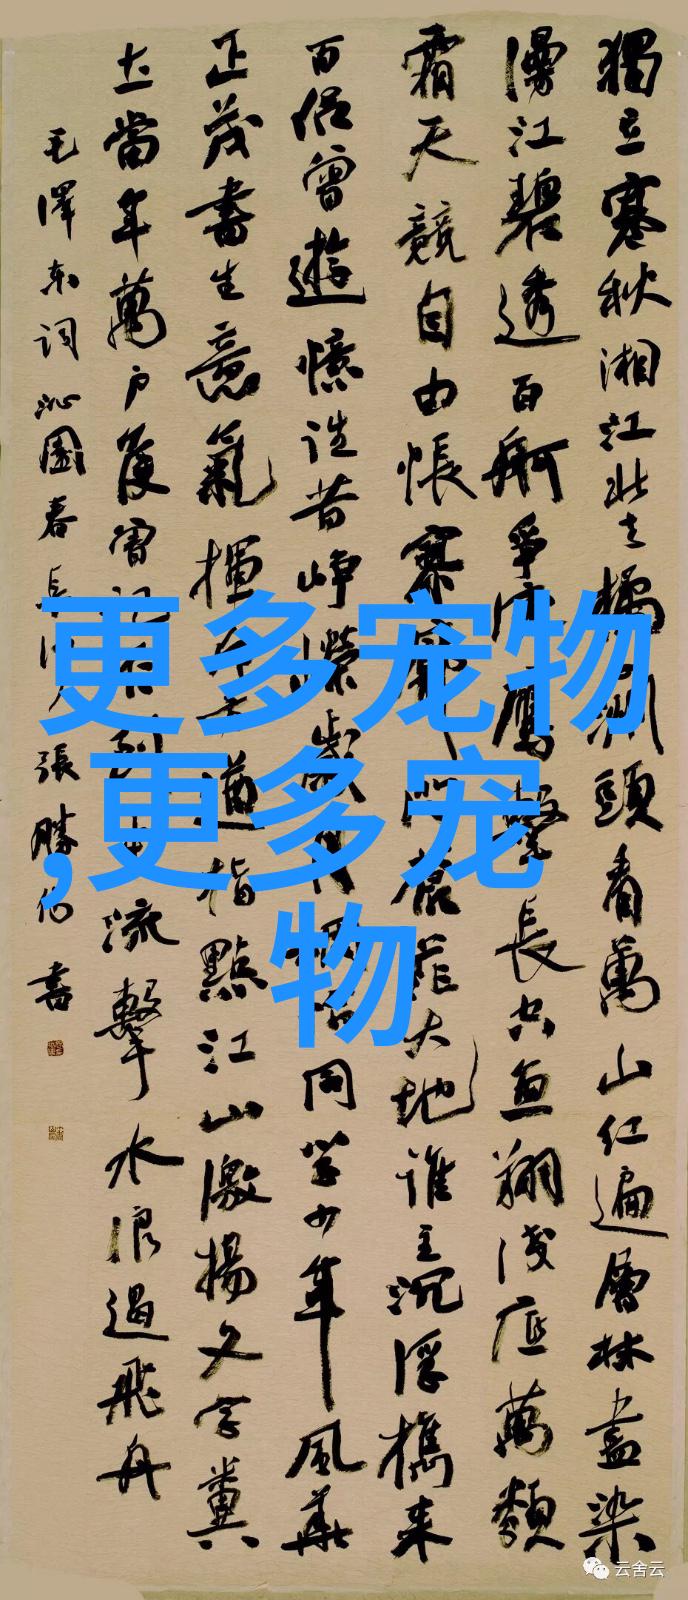 獨立寒秋湘江北去橘洲頭看萬山紅遍層林盡染
漫江碧透百舸爭流鷹擊長空魚翔淺底萬類
霜天競自由悵寥廓問蒼茫大地誰主沉浮攜來
百侶曾遊憶往昔崢嶸歲月稠恰同學少年風華
正茂書生意氣揮斥方遒指點江山激揚文字糞
土當年萬戶侯曾記否到中流擊水浪遏飛舟
毛澤東詞沁園春長沙 張勝伯書
更多宠物
,更多宠
物
云舍云